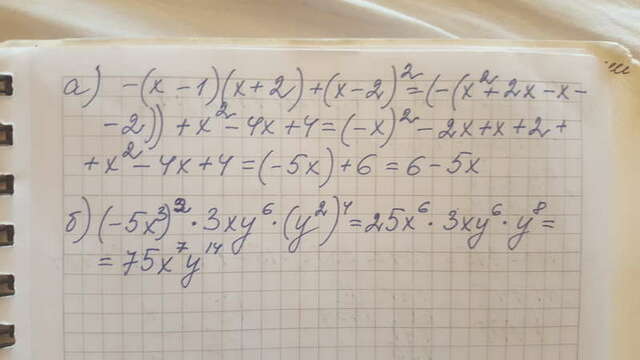 а) -(x-1)(x+2)+(x-2)²=(-(x²+2x-x-
-2))+x²-4x+4=(-x)²-2x+x+2+
+x²-4x+4=(-5x)+6=6-5x
б) (-5x³)²·3xy⁶·(y²)⁴=25x⁶·3xy⁶·y⁸=
=75x⁷y¹⁴